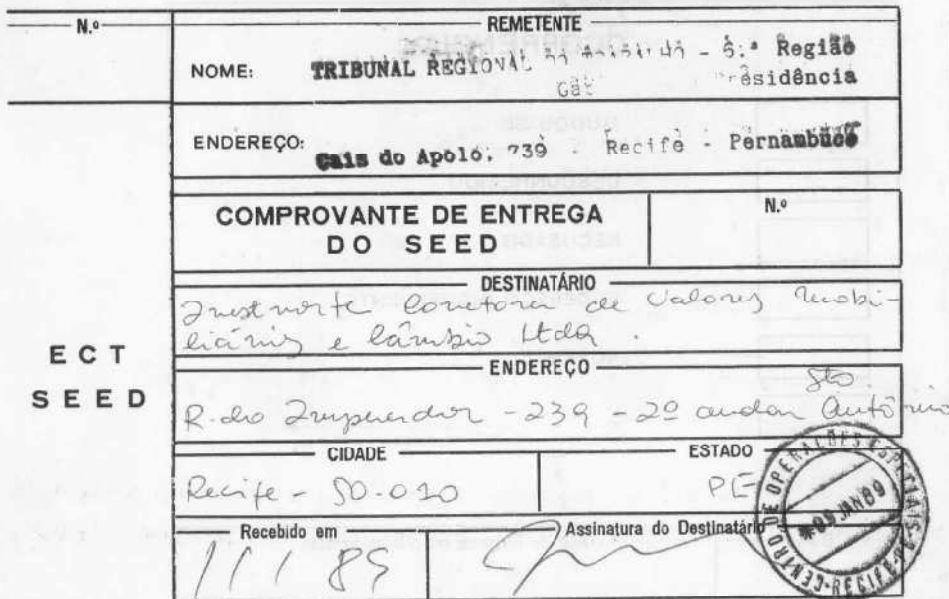 N.º
REMETENTE
NOME: TRIBUNAL REGIONAL - 6.ª Região
Presidência
ENDEREÇO: Cais do Apolo, 739 - Recife - Pernambuco
COMPROVANTE DE ENTREGA
DO SEED
N.º
ECT
SEED
DESTINATÁRIO
corretora de Valores mobi-
liários e Câmbio Ltda.
ENDEREÇO
Sto.
R. do Imperador - 239 - 2º andar Antônio
CIDADE
Recife - 50.010
ESTADO
PE
Recebido em
Assinatura do Destinatário
CENTRO DE OPERAÇÕES ESPECIAIS
RECIFE
09 JAN 89